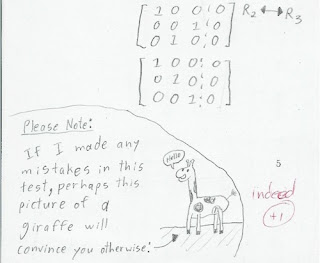 [1 0 0 ¦ 0] R₂ ↔ R₃
[0 0 1 ¦ 0]
[0 1 0 ¦ 0]
[1 0 0 ¦ 0]
[0 1 0 ¦ 0]
[0 0 1 ¦ 0]
Please Note:
If I made any
mistakes in this
test, perhaps this
picture of a
giraffe will
convince you otherwise:
Hello
5
indeed
+1